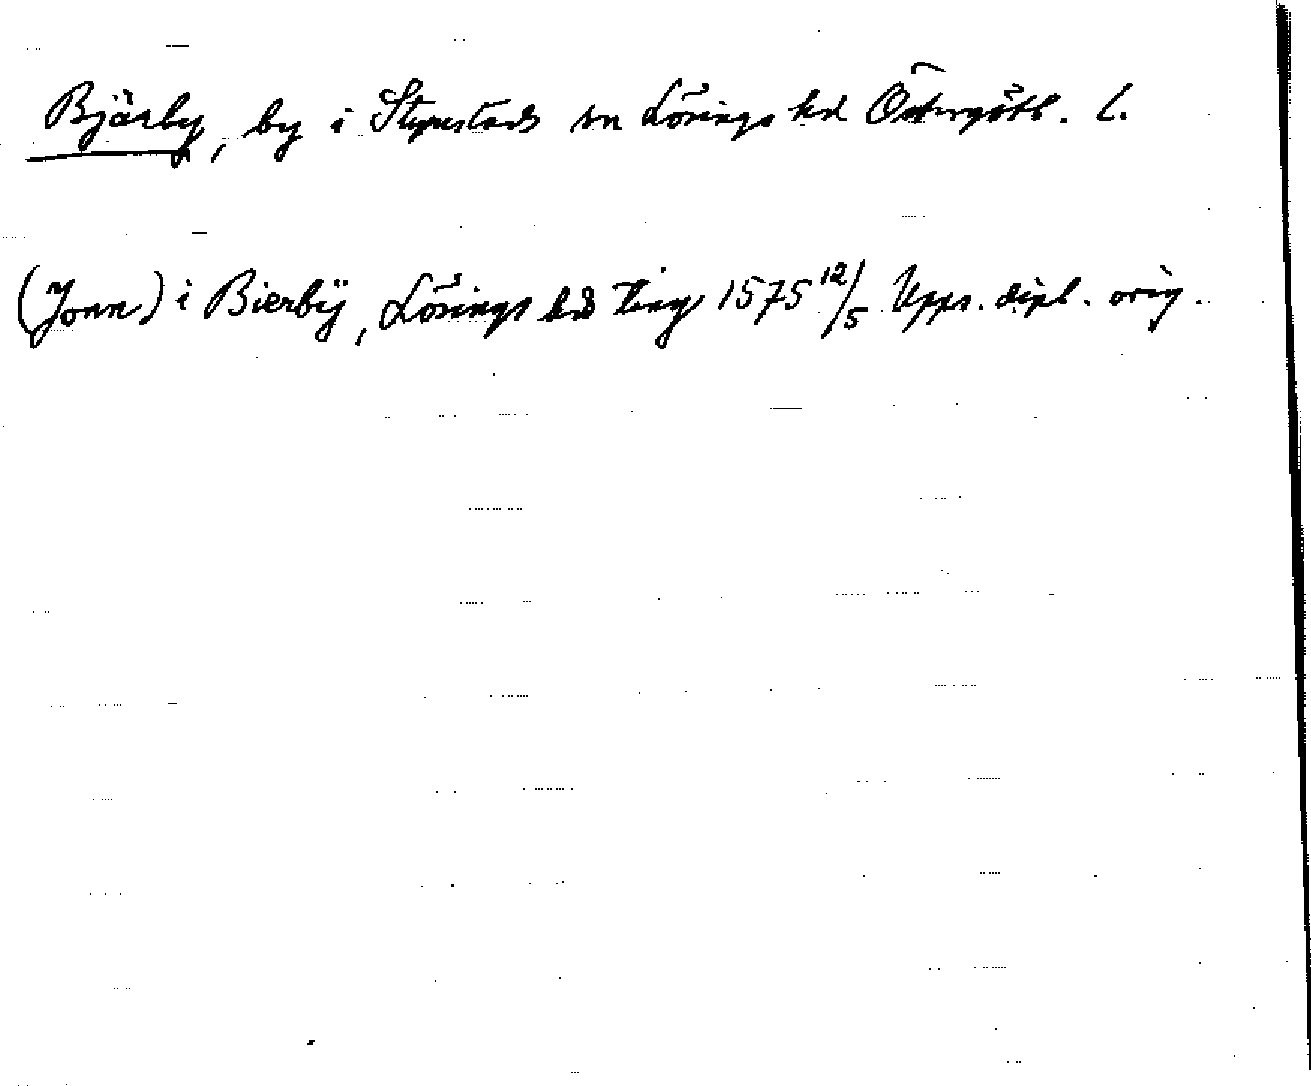 Bjärby, by i Styrestads sn Lösings hd Östergötl. l.
(Jonn) i Bierbÿ, Lösings hd ting 1575 12/5 Upps. dipl. orig.